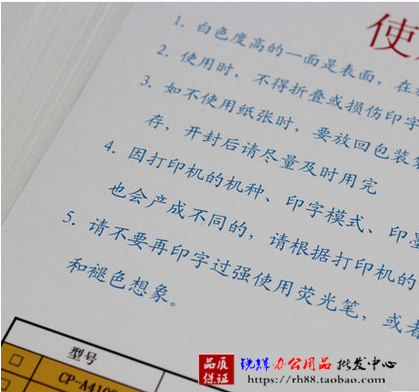 使
1. 白色度高的一面是表面，在
2. 使用时，不得折叠或损伤印字
3. 如不使用纸张时，要放回包装
存，开封后请尽量及时用完
4. 因打印机的机种、印字模式、印墨
也会产成不同的，请根据打印机的
5. 请不要再印字过强使用荧光笔，或者
和褪色想象。
型号
CP-A410
品质保证
锐辉办公用品 批发中心
https://rh88.taobao.com